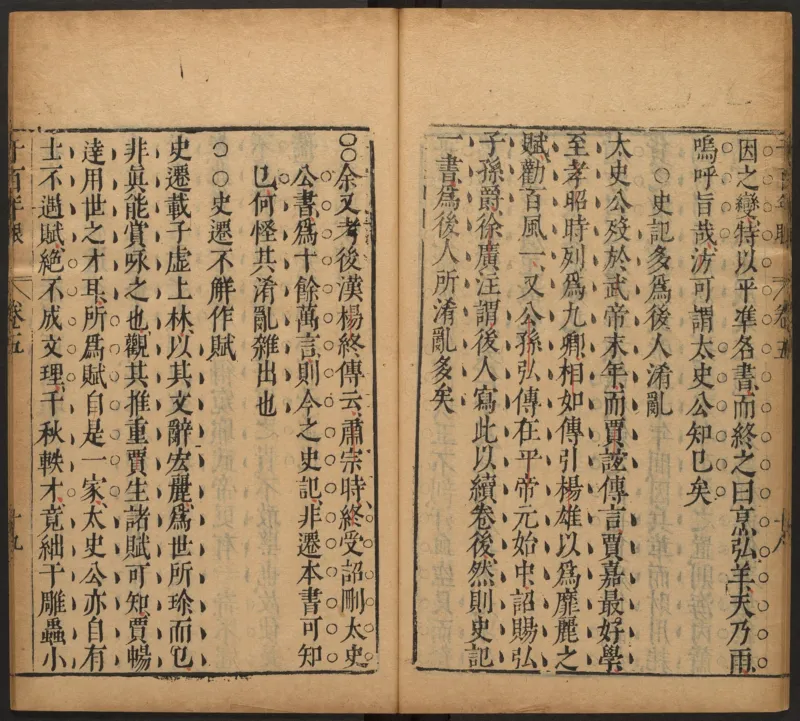 因之變特以平準各書而終之曰烹弘羊天乃雨
嗚呼旨哉淓可謂太史公知已矣
○史記多爲後人淆亂
太史公歿於武帝末年而賈誼傳言賈嘉最好學
至孝昭時列爲九卿相如傳引楊雄以爲靡麗之
賦勸百風一又公孫弘傳在平帝元始中詔賜弘
子孫爵徐廣注謂後人寫此以續卷後然則史記
一書爲後人所淆亂多矣
卷五
十八
○○余又考後漢楊終傳云肅宗時終受詔刪太史
公書爲十餘萬言則今之史記非遷本書可知
已何怪其淆亂雜出也
○○史遷不解作賦
史遷載子虛上林以其文辭宏麗爲世所珍而已
非眞能賞咏之也觀其推重賈生諸賦可知賈暢
達用世之才耳所爲賦自是一家太史公亦自有
士不遇賦絶不成文理千秋軼才竟絀于雕蟲小
千百年眼
卷五
十九